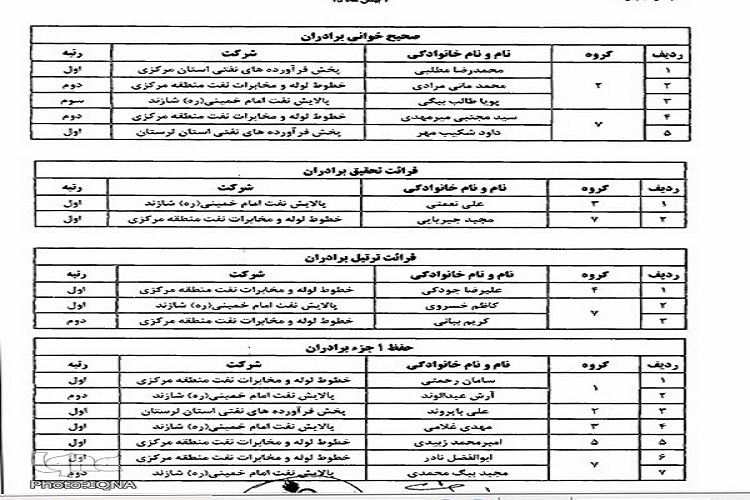 صحیح خوانی برادران
ردیف گروه نام و نام خانوادگی شرکت رتبه
۱ ۲ محمدرضا مطلبی پخش فرآورده های نفتی استان مرکزی اول
۲ محمد مانی مرادی خطوط لوله و مخابرات نفت منطقه مرکزی دوم
۳ پویا طالب بیگی پالایش نفت امام خمینی(ره) شازند سوم
۴ ۷ سید مجتبی میرمهدی خطوط لوله و مخابرات نفت منطقه مرکزی دوم
۵ داود شکیب مهر پخش فرآورده های نفتی استان لرستان اول
قرائت تحقیق برادران
ردیف گروه نام و نام خانوادگی شرکت رتبه
۱ ۳ علی نعمتی پالایش نفت امام خمینی(ره) شازند اول
۲ ۷ مجید جیریایی خطوط لوله و مخابرات نفت منطقه مرکزی اول
قرائت ترتیل برادران
ردیف گروه نام و نام خانوادگی شرکت رتبه
۱ ۴ علیرضا جودکی خطوط لوله و مخابرات نفت منطقه مرکزی اول
۲ ۷ کاظم خسروی پالایش نفت امام خمینی(ره) شازند اول
۳ کریم بیانی خطوط لوله و مخابرات نفت منطقه مرکزی دوم
حفظ ۱ جزء برادران
ردیف گروه نام و نام خانوادگی شرکت رتبه
۱ ۱ سامان رحمتی خطوط لوله و مخابرات نفت منطقه مرکزی اول
۲ آرش عبدالوند پالایش نفت امام خمینی(ره) شازند دوم
۳ ۲ علی پاپروند پخش فرآورده های نفتی استان لرستان اول
۴ ۳ مهدی غلامی پالایش نفت امام خمینی(ره) شازند اول
۵ ۵ امیرمحمد زبیدی خطوط لوله و مخابرات نفت منطقه مرکزی اول
۶ ۷ ابوالفضل نادر خطوط لوله و مخابرات نفت منطقه مرکزی اول
۷ مجید بیگ محمدی پالایش نفت امام خمینی(ره) شازند دوم
Photo:IQNA